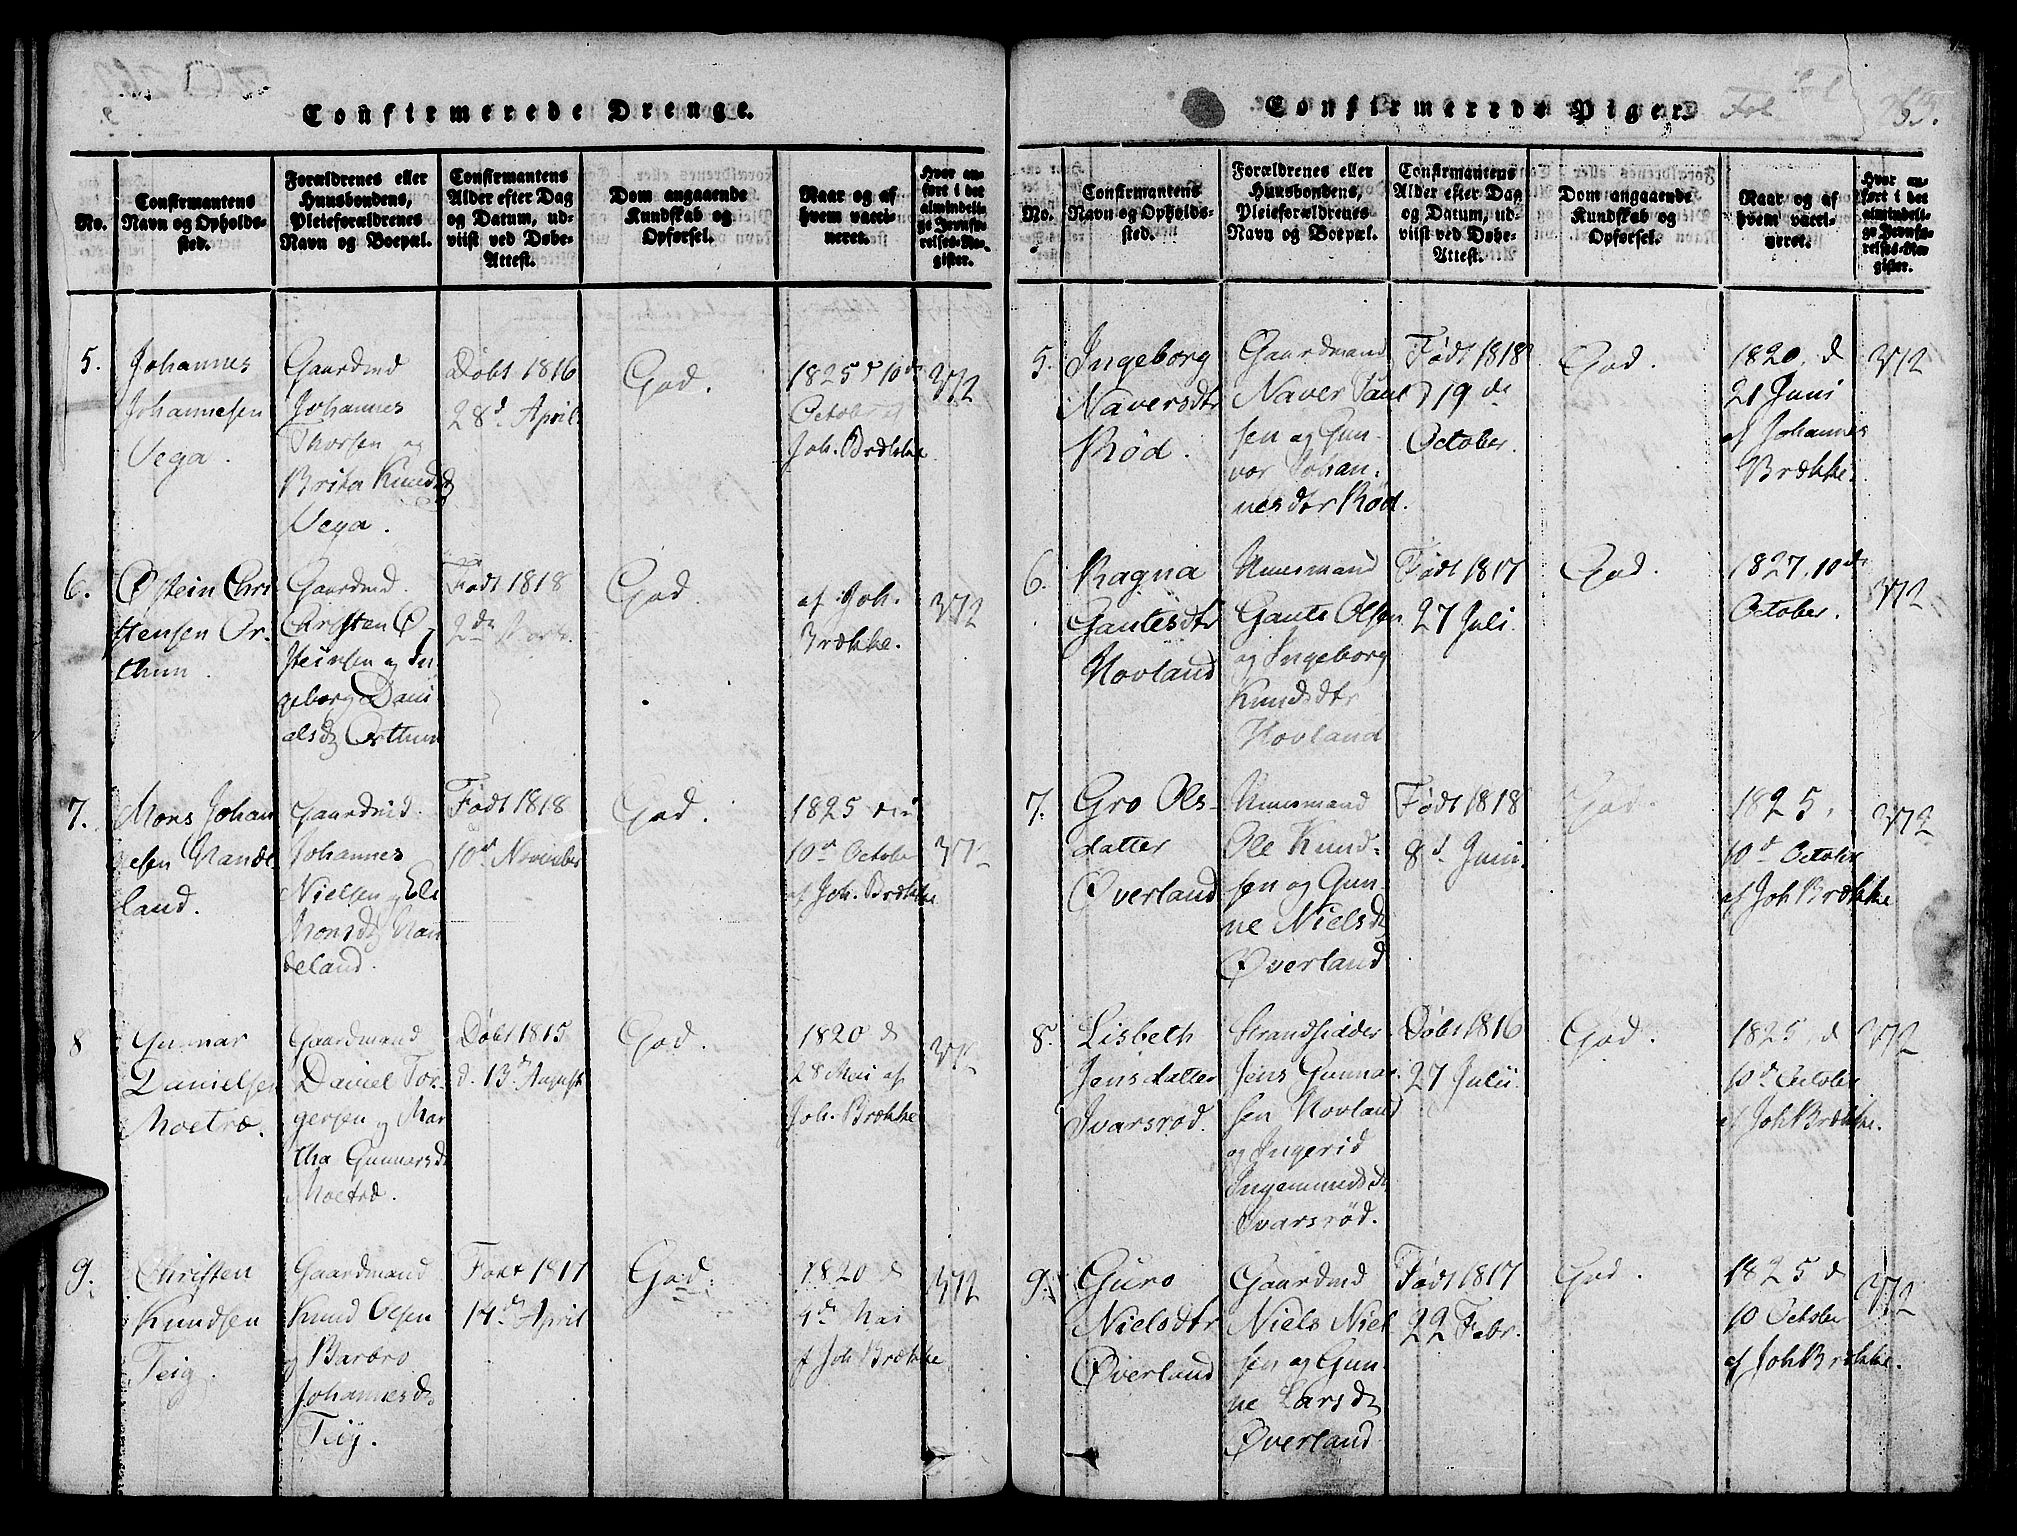 Confirmerede Drenge.
No.
Confirmantens
Navn og Opholds-
sted.
Forældrenes eller
Huusbondens,
Pleieforældrenes
Navn og Boepæl.
Confirmantens
Alder efter Dag
og Datum, ud-
viist ved Døbe-
Attest.
Dom angaaende
Kundskab og
Opførsel.
Naar og af
hvem vacci-
neret.
Hvor an-
ført i det
almindeli-
ge Jevnfø-
relses-Re-
gister.
5.
Johannes
Johannesen
Vega.
Gaardmd
Johannes
Thorsen og
Brita Knudsd
Vega.
Døbt 1816
28d April
God.
1825 d 10de
October af
Joh. Brække
372
6.
Østein Chri
stensen Or-
thun.
Gaardmd.
Christen Ø-
steinsen og In
geborg Dani
alsd Orthun
Født 1818
2de
God.
af Joh.
Brække.
372
7.
Mons Johan
nesen Nande
land.
Gaardmd.
Johannes
Nielsen og Eli
Monsd Nan
deland.
Født 1818
10d November
God.
1825
10d October
af Joh. Brække
372
8
Gunnar
Danielsen
Moetræ.
Gaardmand
Daniel Tor-
gersen og Mar
tha Gunnarsd
Moetræ.
Døbt 1815
d. 13d August
God.
1820 d
28 Mai af
Joh. Brække
372
9.
Christen
Knudsen
Teig.
Gaardmand
Knud Olsen
og Barbro
Johannesd.
Teig.
Født 1817
14de April
God.
1820 d
4de Mai
af Joh Brække
372
Confirmerede Piger.
Fol
265.
No.
Confirmantens
Navn og Opholds-
sted.
Forældrenes eller
Huusbondens,
Pleieforældrenes
Navn og Boepæl.
Confirmantens
Alder efter Dag
og Datum, ud-
viist ved Døbe-
Attest.
Dom angaaende
Kundskab og
Opførsel.
Naar og af
hvem vacci-
neret.
Hvor an-
ført i det
almindeli-
ge Jevnfø-
relses-Re-
gister.
5.
Ingeborg
Naversdtr
Rød.
Gaardmand
Naver Paul
sen og Gun-
vor Johan-
nesdtr Rød.
Født 1818
d 19de
October.
God.
1820, d
21 Juni
af Johannes
Brække.
372
6.
Ragna
Gautesdtr
Hovland
Huusmand
Gaute Olsen
og Ingeborg
Knudsdtr
Hovland
Født 1817
27 Juli
God.
1827, 10de
October.
372
7.
Gro Ols-
datter
Øverland
Huusmand
Ole Knud-
sen og Gun-
ne Nielsd
Øverland
Født 1818
8d Juni.
God.
1825,
10d October
af Joh Brække
372
8.
Lisbeth
Jensdatter
Ivarsrød.
Strandsidder
Jens Gunnar
sen Hovland
og Ingerid
Ingemundsd
Ivarsrød.
Døbt 1816
27 Julii
God.
1825, d
10d October
af Joh Brække.
372
9.
Guro
Nielsdtr
Øverland
Gaardmd
Niels Niel
sen og Gun-
ne Larsd
Øverland
Født 1817
22 Febr.
God.
1825 d
10 October
af Joh Brække.
372